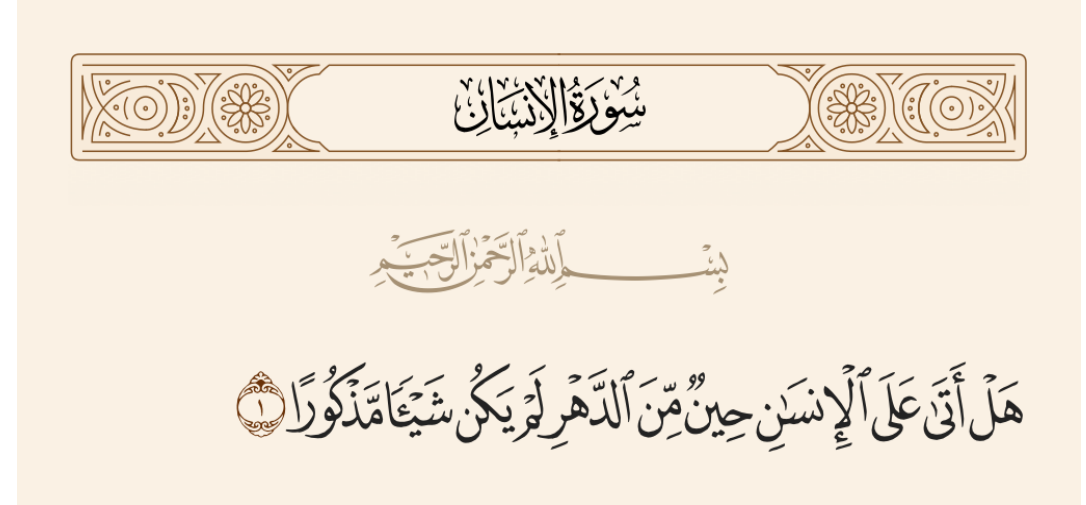 سُورَةُ الإِنسَانِ
بِسْمِ ٱللَّهِ ٱلرَّحْمَٰنِ ٱلرَّحِيمِ
هَلْ أَتَىٰ عَلَى ٱلْإِنسَٰنِ حِينٌ مِّنَ ٱلدَّهْرِ لَمْ يَكُن شَيْـًٔا مَّذْكُورًا ١